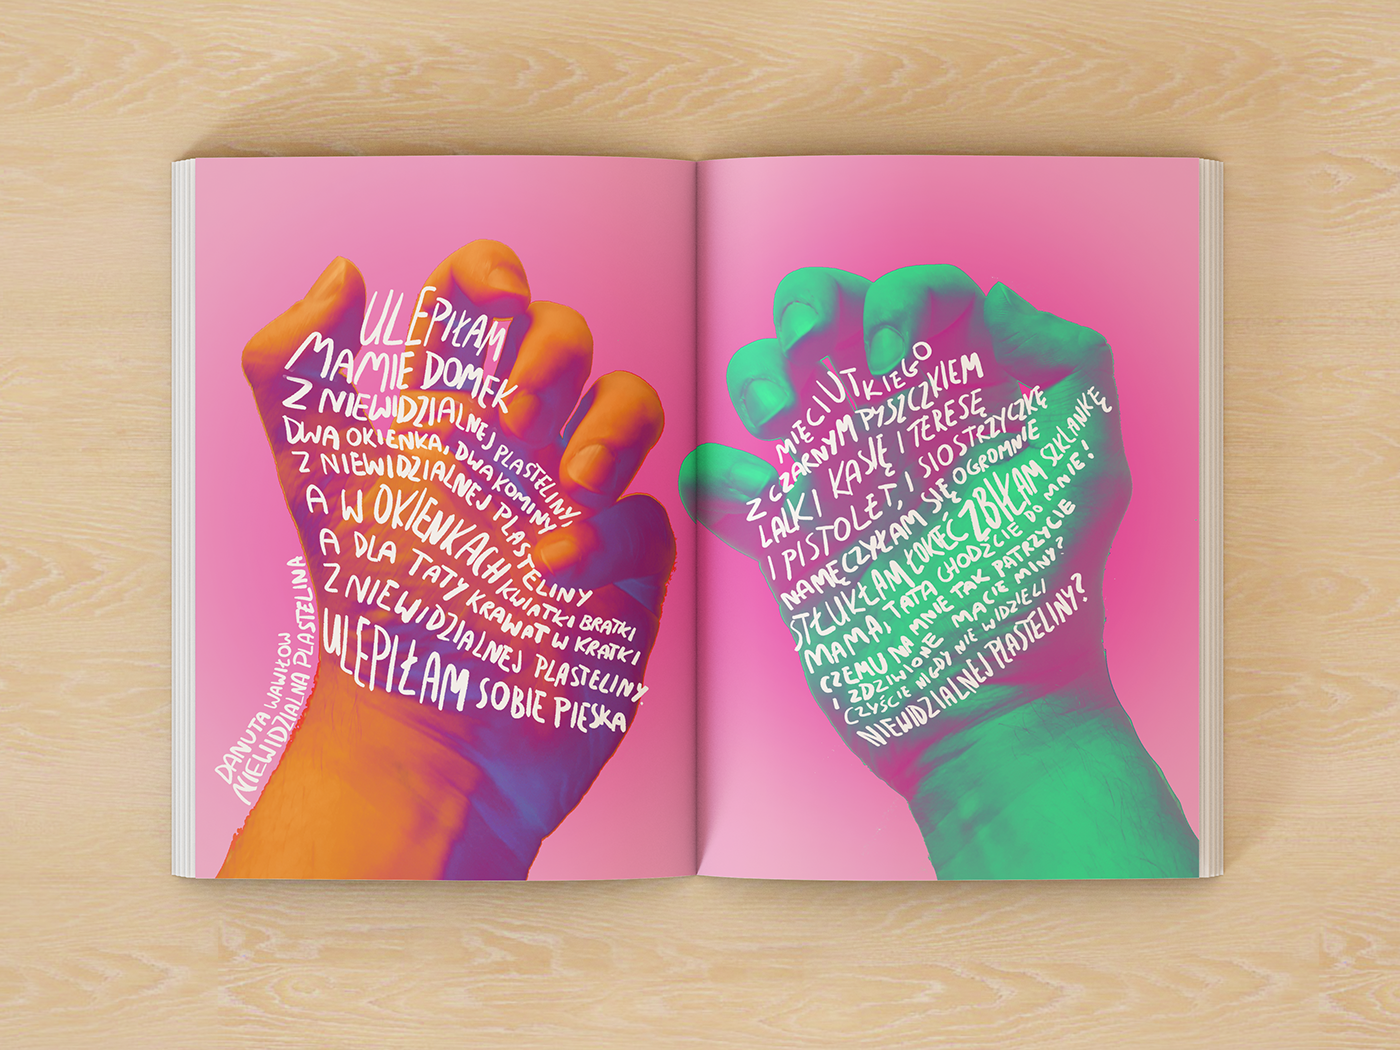 ULEPIŁAM
MAMIE DOMEK
Z NIEWIDZIALNEJ PLASTELINY,
DWA OKIENKA, DWA KOMINY
Z NIEWIDZIALNEJ PLASTELINY
A W OKIENKACH KWIATKI BRATKI
A DLA TATY KRAWAT W KRATKI
Z NIEWIDZIALNEJ PLASTELINY.
ULEPIŁAM SOBIE PIESKA
DANUTA WAWIŁOW
NIEWIDZIALNA PLASTELINA
MIĘCIUTKIEGO
Z CZARNYM PYSZCZKIEM
LALKI KASIĘ I TERESĘ
I PISTOLET, I SIOSTRZYCZKĘ
NAMĘCZYŁAM SIĘ OGROMNIE
STŁUKŁAM ŁOKIEĆ ZBIŁAM SZKLANKĘ
MAMA, TATA CHODŹCIE DO MNIE!
CZEMU NA MNIE TAK PATRZYCIE
I ZDZIWIONE MACIE MINY?
CZYŚCIE NIGDY NIE WIDZIELI
NIEWIDZIALNEJ PLASTELINY?